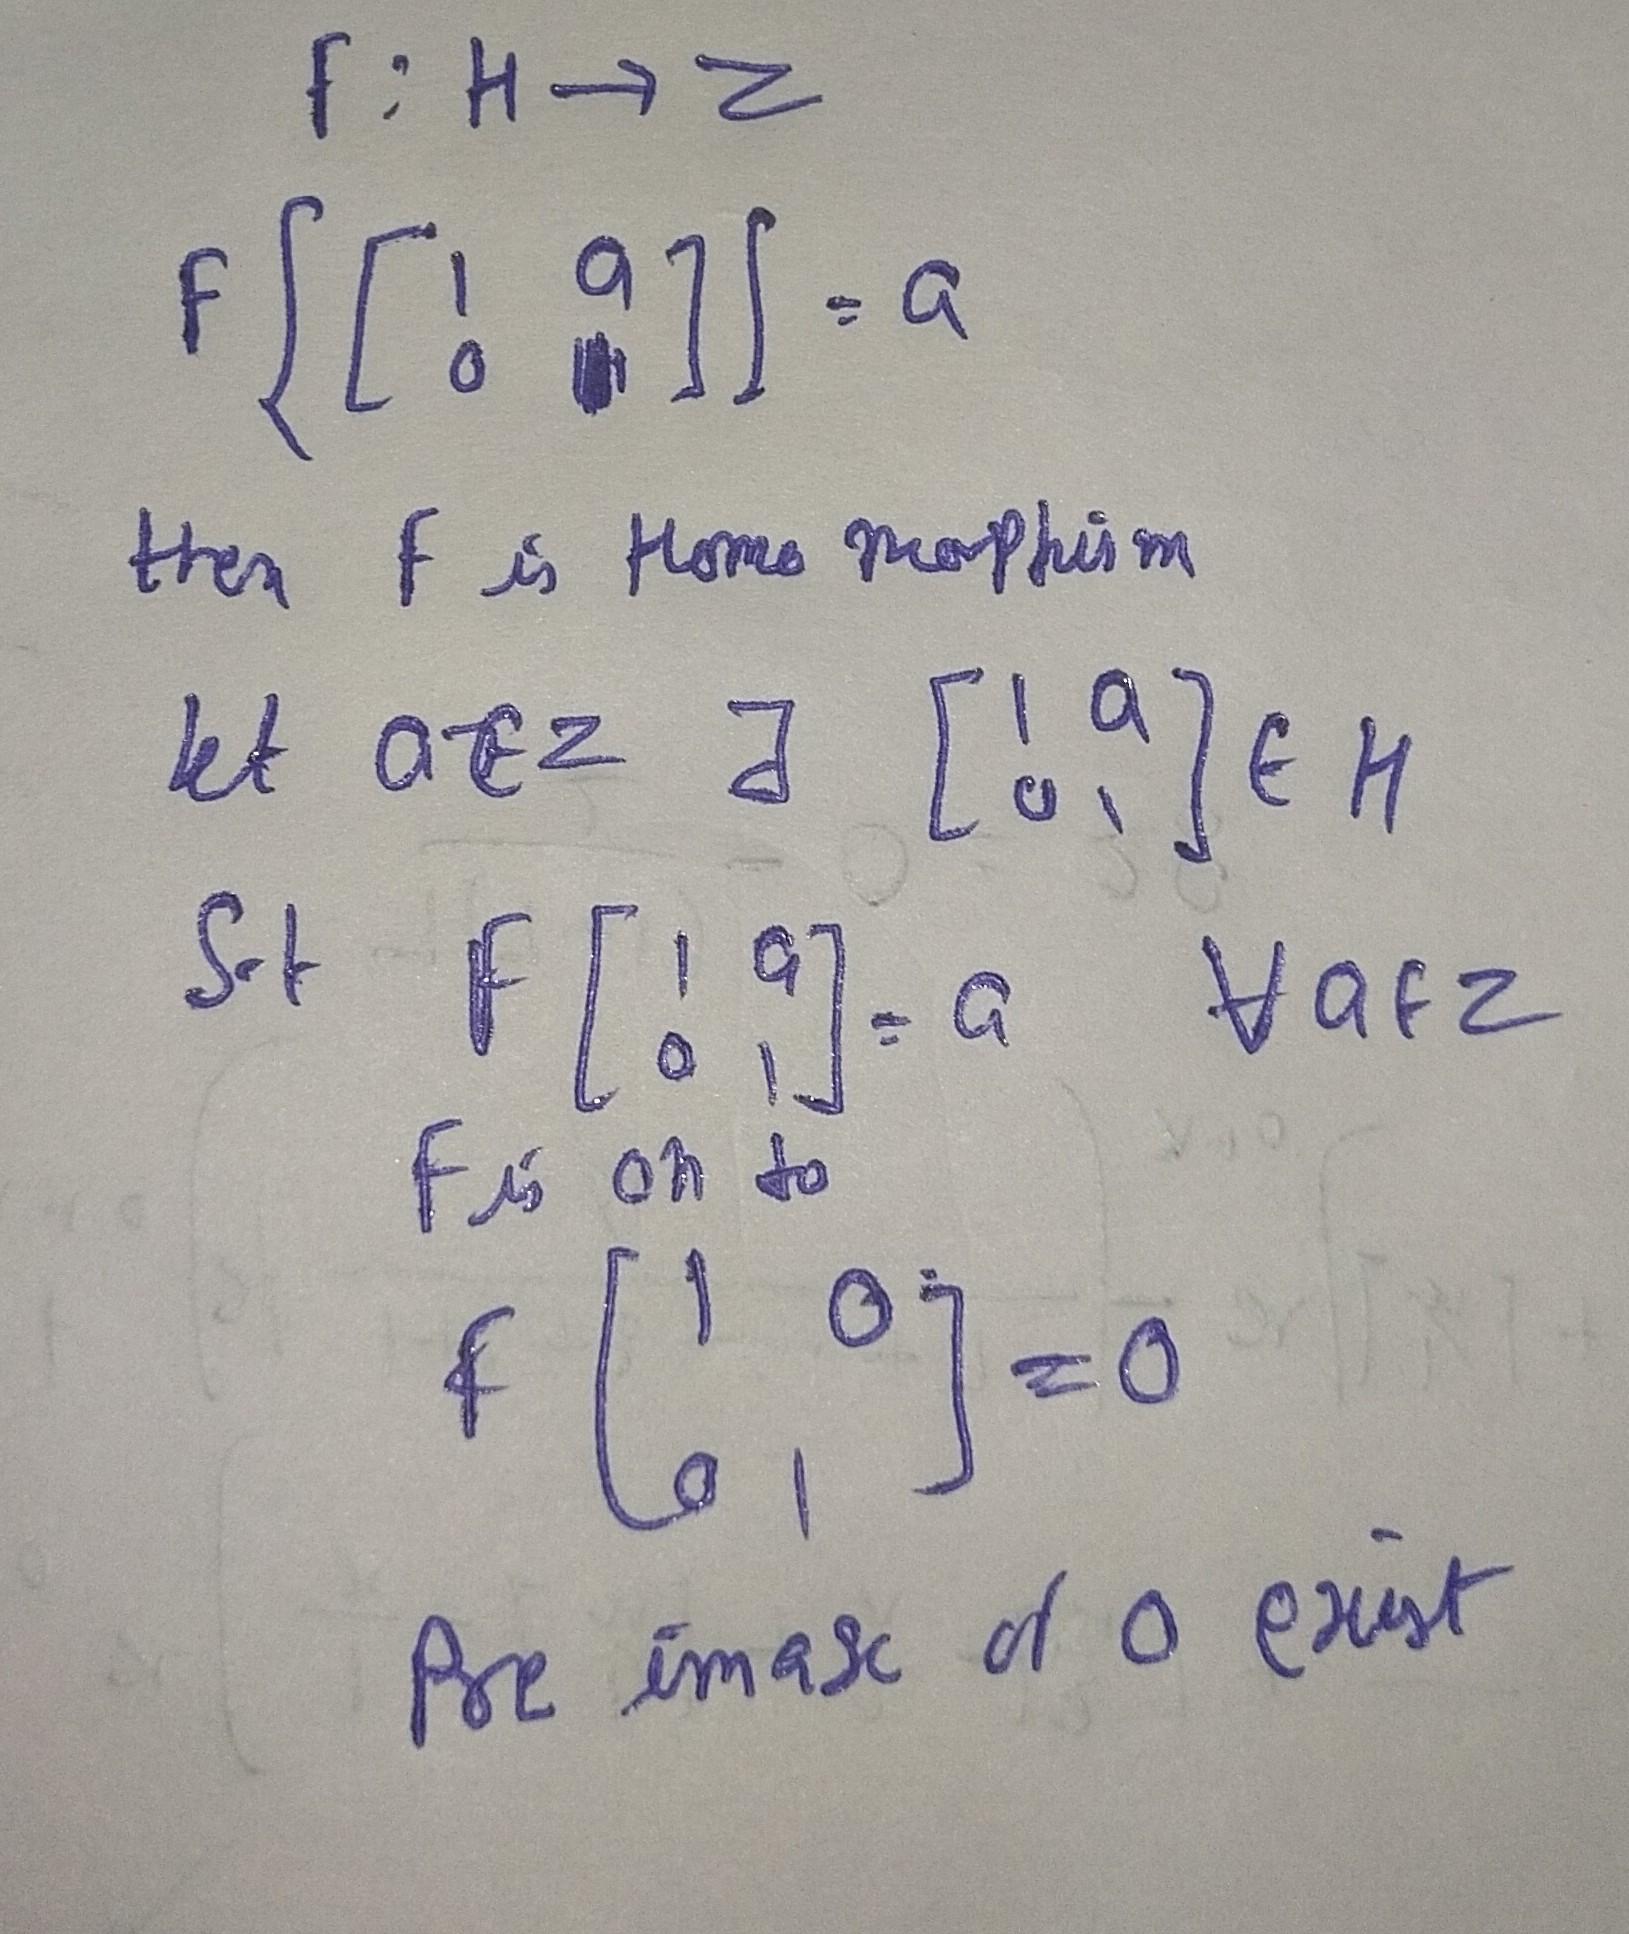 f : H → Z
F { [ 1 a
0 1 ] } = a
then f is Homo morphism
let a ∈ Z ∃ [ 1 a
0 1 ] ∈ H
S.t F [ 1 a
0 1 ] = a ∀ a ∈ Z
F is on to
f [ 1 0
0 1 ] = 0
Pre image of 0 exist